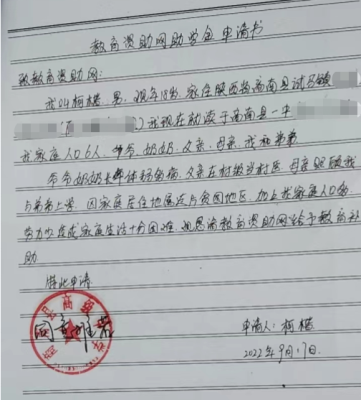 教育资助网助学金申请书
致教育资助网：
我叫柯楼，男，现年18岁，家住陕西省商南县试马镇
我现在就读于商南县一中
我家庭人口6人，爷爷，奶奶，父亲，母亲，我和弟弟
爷爷奶奶长年体弱多病，父亲在村做当村医，母亲照顾我
与弟弟上学，因家庭居住地属于贫困地区，加上我家庭人口多，
劳力少造成家庭生活十分困难，现恳请教育资助网给予教育补
助
特此申请
同意
申请人：柯楼
2022年9月17日